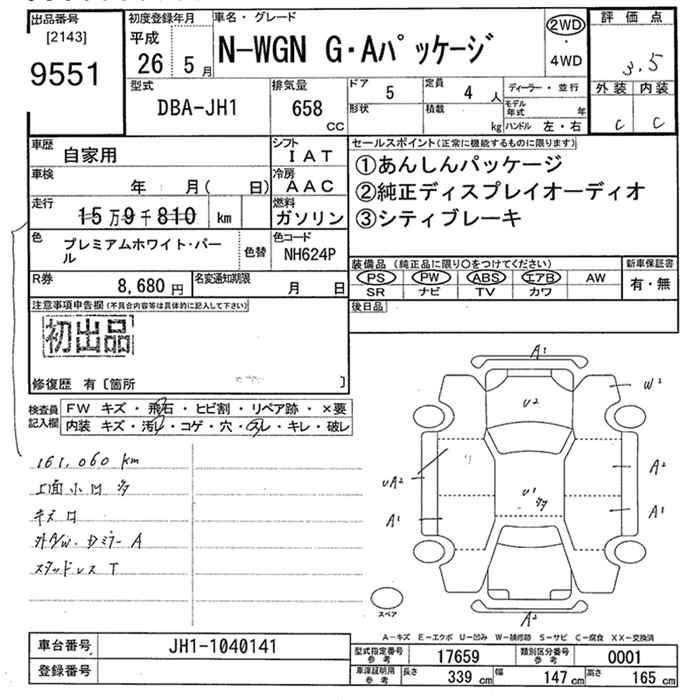 出品番号 [2143] 9551
初度登録年月 平成 26 5 月
車名・グレード N-WGN G・Aパッケージ
2WD ・ 4WD
評価点 3.5
外装 内装
C C
型式 DBA-JH1
排気量 658 CC
ドア 5
定員 4 人
形状
積載 kg
ディーラー・並行
モデル年式 年
ハンドル 左・右
車歴 自家用
シフト IAT
車検 年 月( 日)
冷房 AAC
走行 15万9千810 km
燃料 ガソリン
色 プレミアムホワイト・パール
色替
色コード NH624P
R券 8,680円
名変通知期限 月 日
セールスポイント(正常に機能するものに限ります)
①あんしんパッケージ
②純正ディスプレイオーディオ
③シティブレーキ
装備品 (純正品に限り○をつけてください)
PS PW ABS エアB AW
SR ナビ TV カワ
新車保証書
有・無
後日品
注意事項申告欄 (不具合内容等は具体的に記入して下さい)
初出品
修復歴 有 [箇所 ]
検査員記入欄
FW キズ・飛石・ヒビ割・リペア跡・×要
内装 キズ・汚レ・コゲ・穴・スレ・キレ・破レ
161,060 km
上面小凹多
キズ凹
スタッドレス T
A1
U2
W2
UA2
A1
U1
多
A2
A1
A2
スペア
A-キズ E-エクボ U-凹み W-補修跡 S-サビ C-腐食 XX-交換済
車台番号 JH1-1040141
登録番号
型式指定番号 参考 17659
類別区分番号 参考 0001
車庫証明用 参考 長さ 339 cm 幅 147 cm 高さ 165 cm